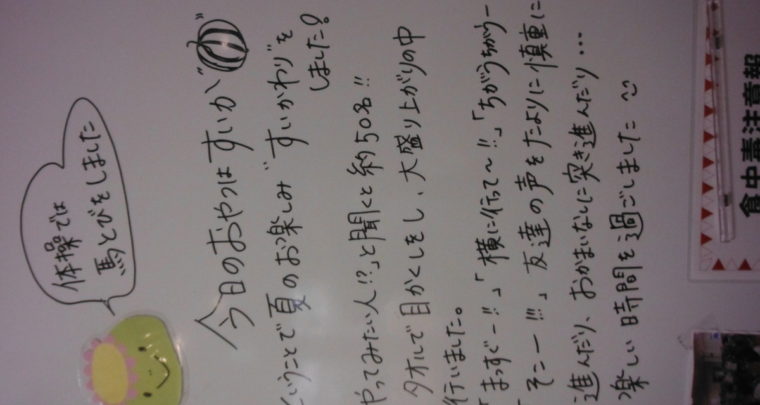 体操では
馬とびをしました
今日のおやつは"すいか"
ということで夏のお楽しみ"すいかわり"を
しました!
やってみたい人!?」と聞くと約50名!!
タオルで目かくしをし、大盛り上がりの中
行いました。
「まっすぐー!!」「横に行って〜!!」「ちがうちがうー
そこー!!!」友達の声をたよりに慎重に
進んだり、おかまいなしに突き進んだり…
楽しい時間を過ごしました
食中毒注意報